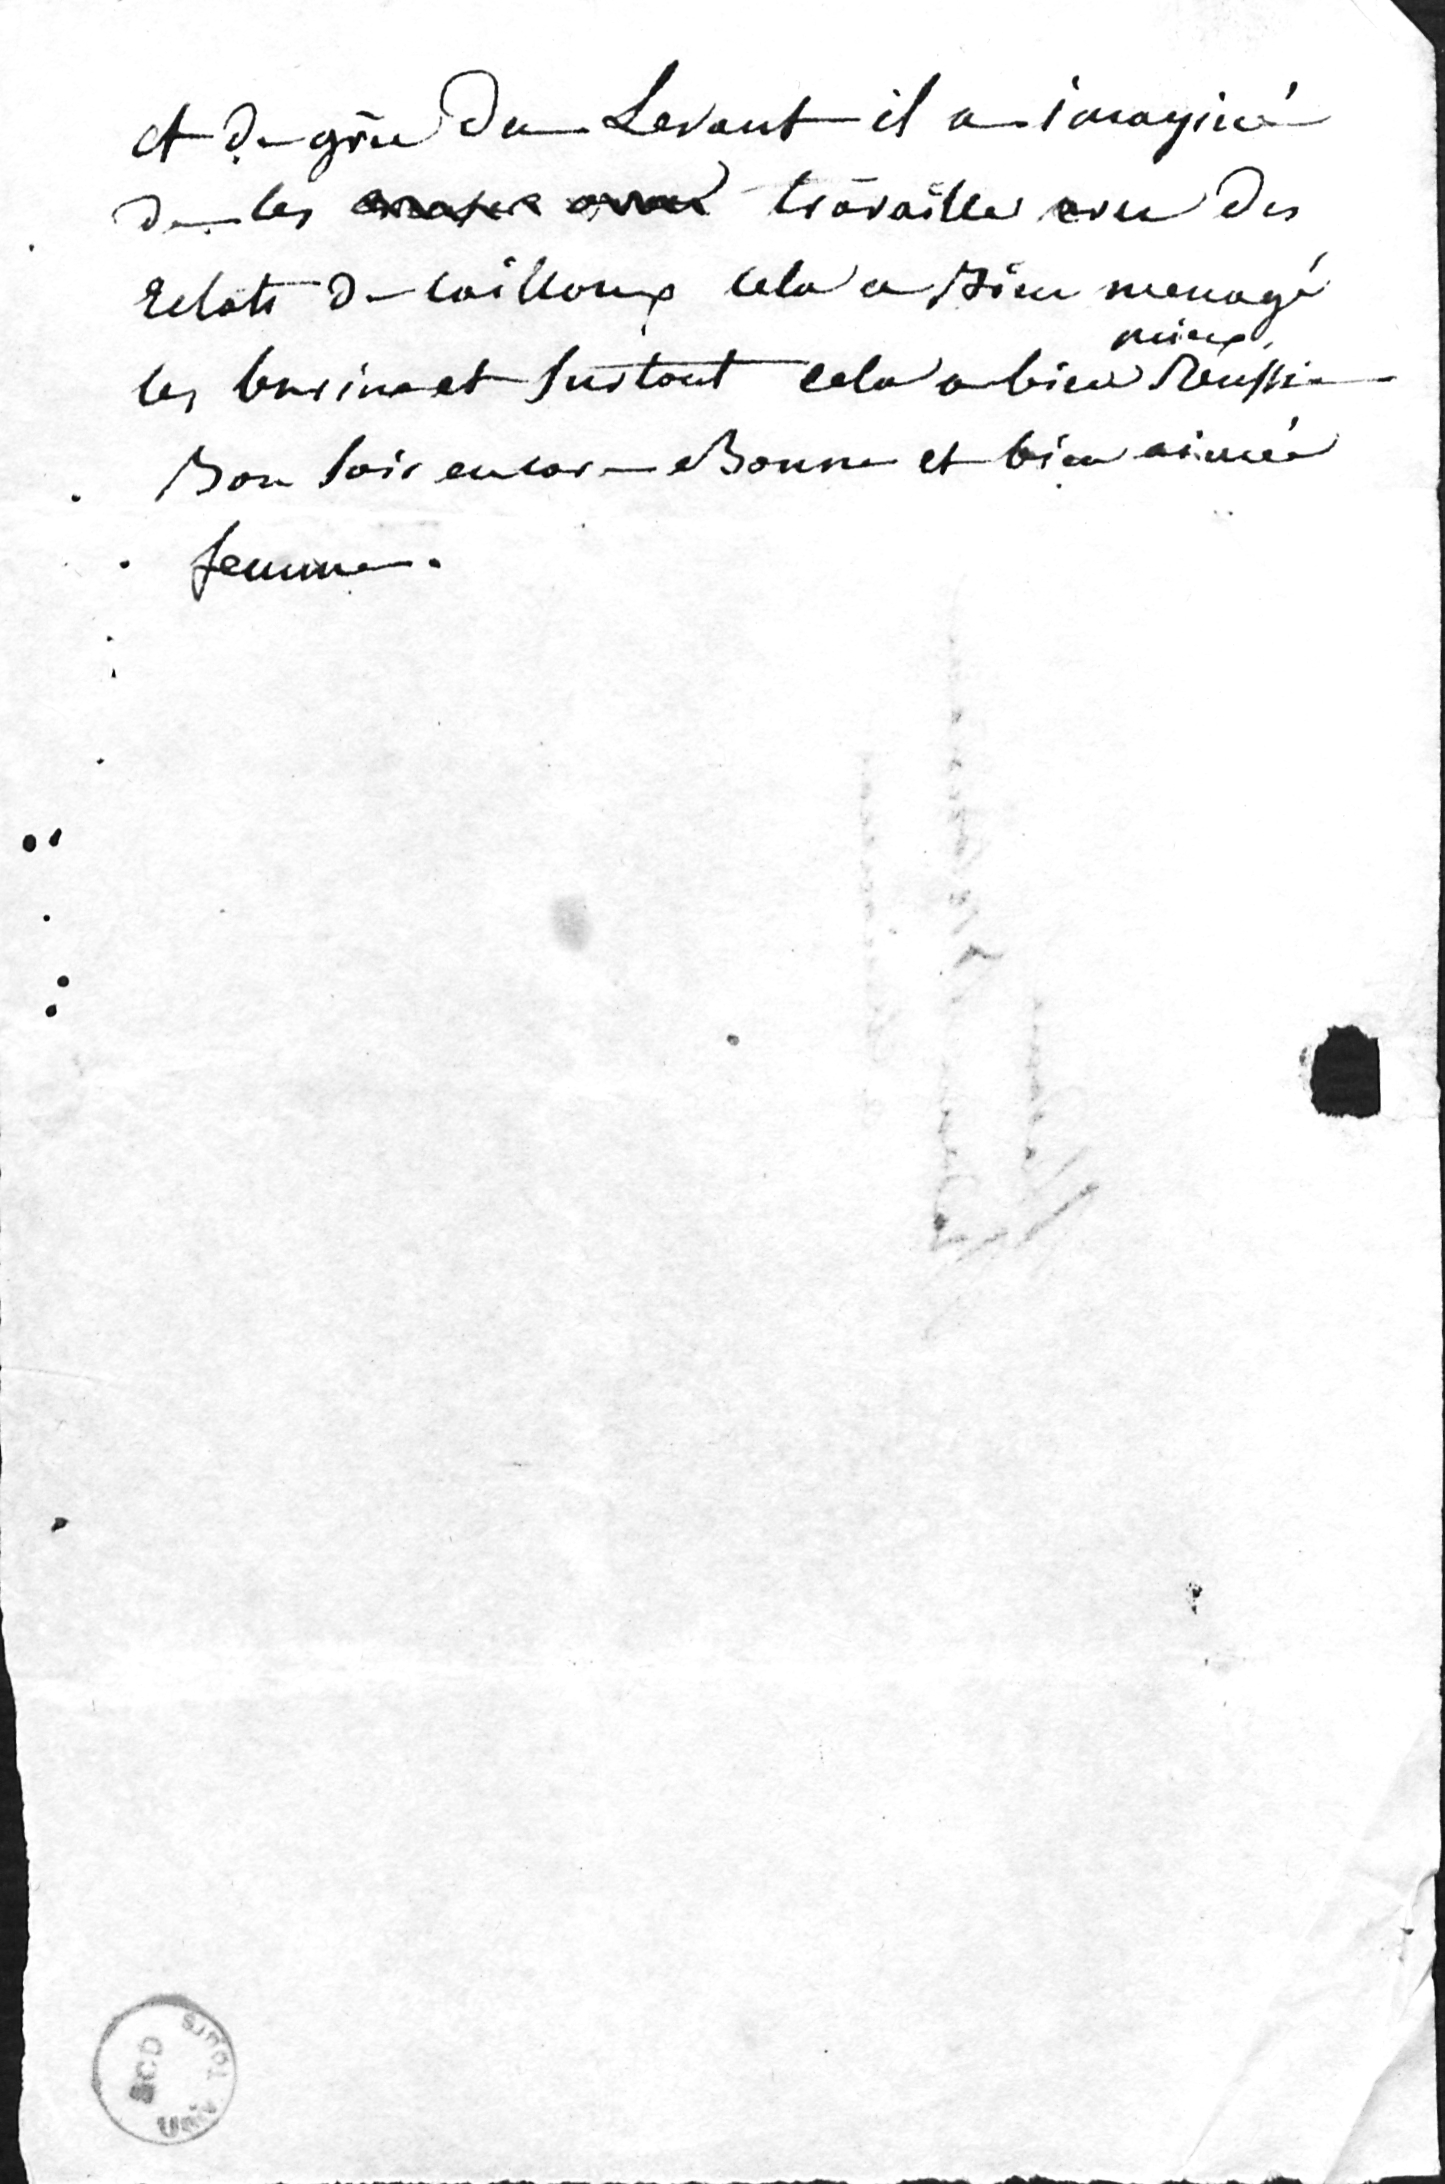 et de grès du Levant il a imaginé
de les travailler avec des
Eclats de cailloux cela a bien menagé
mieux
les burins et surtout cela a bien Reussi
Bon soir encore Bonne et bien aimée
femme.
BCD
Univ Tours